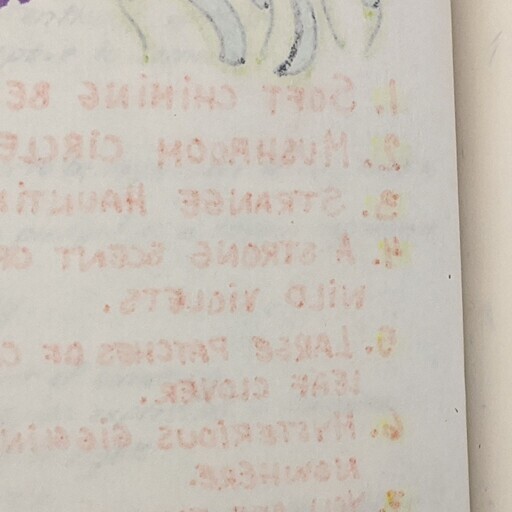 1. SOFT CHIMING BE
2. MUSHROOM CIRCLE
3. STRANGE HAUNTIN
4. A STRONG SCENT OF
WILD VIOLETS.
5. LARGE PATCHES OF
LEAF CLOVER.
6. MYSTERIOUS GIGGLIN
NOWHERE.
7. YOU